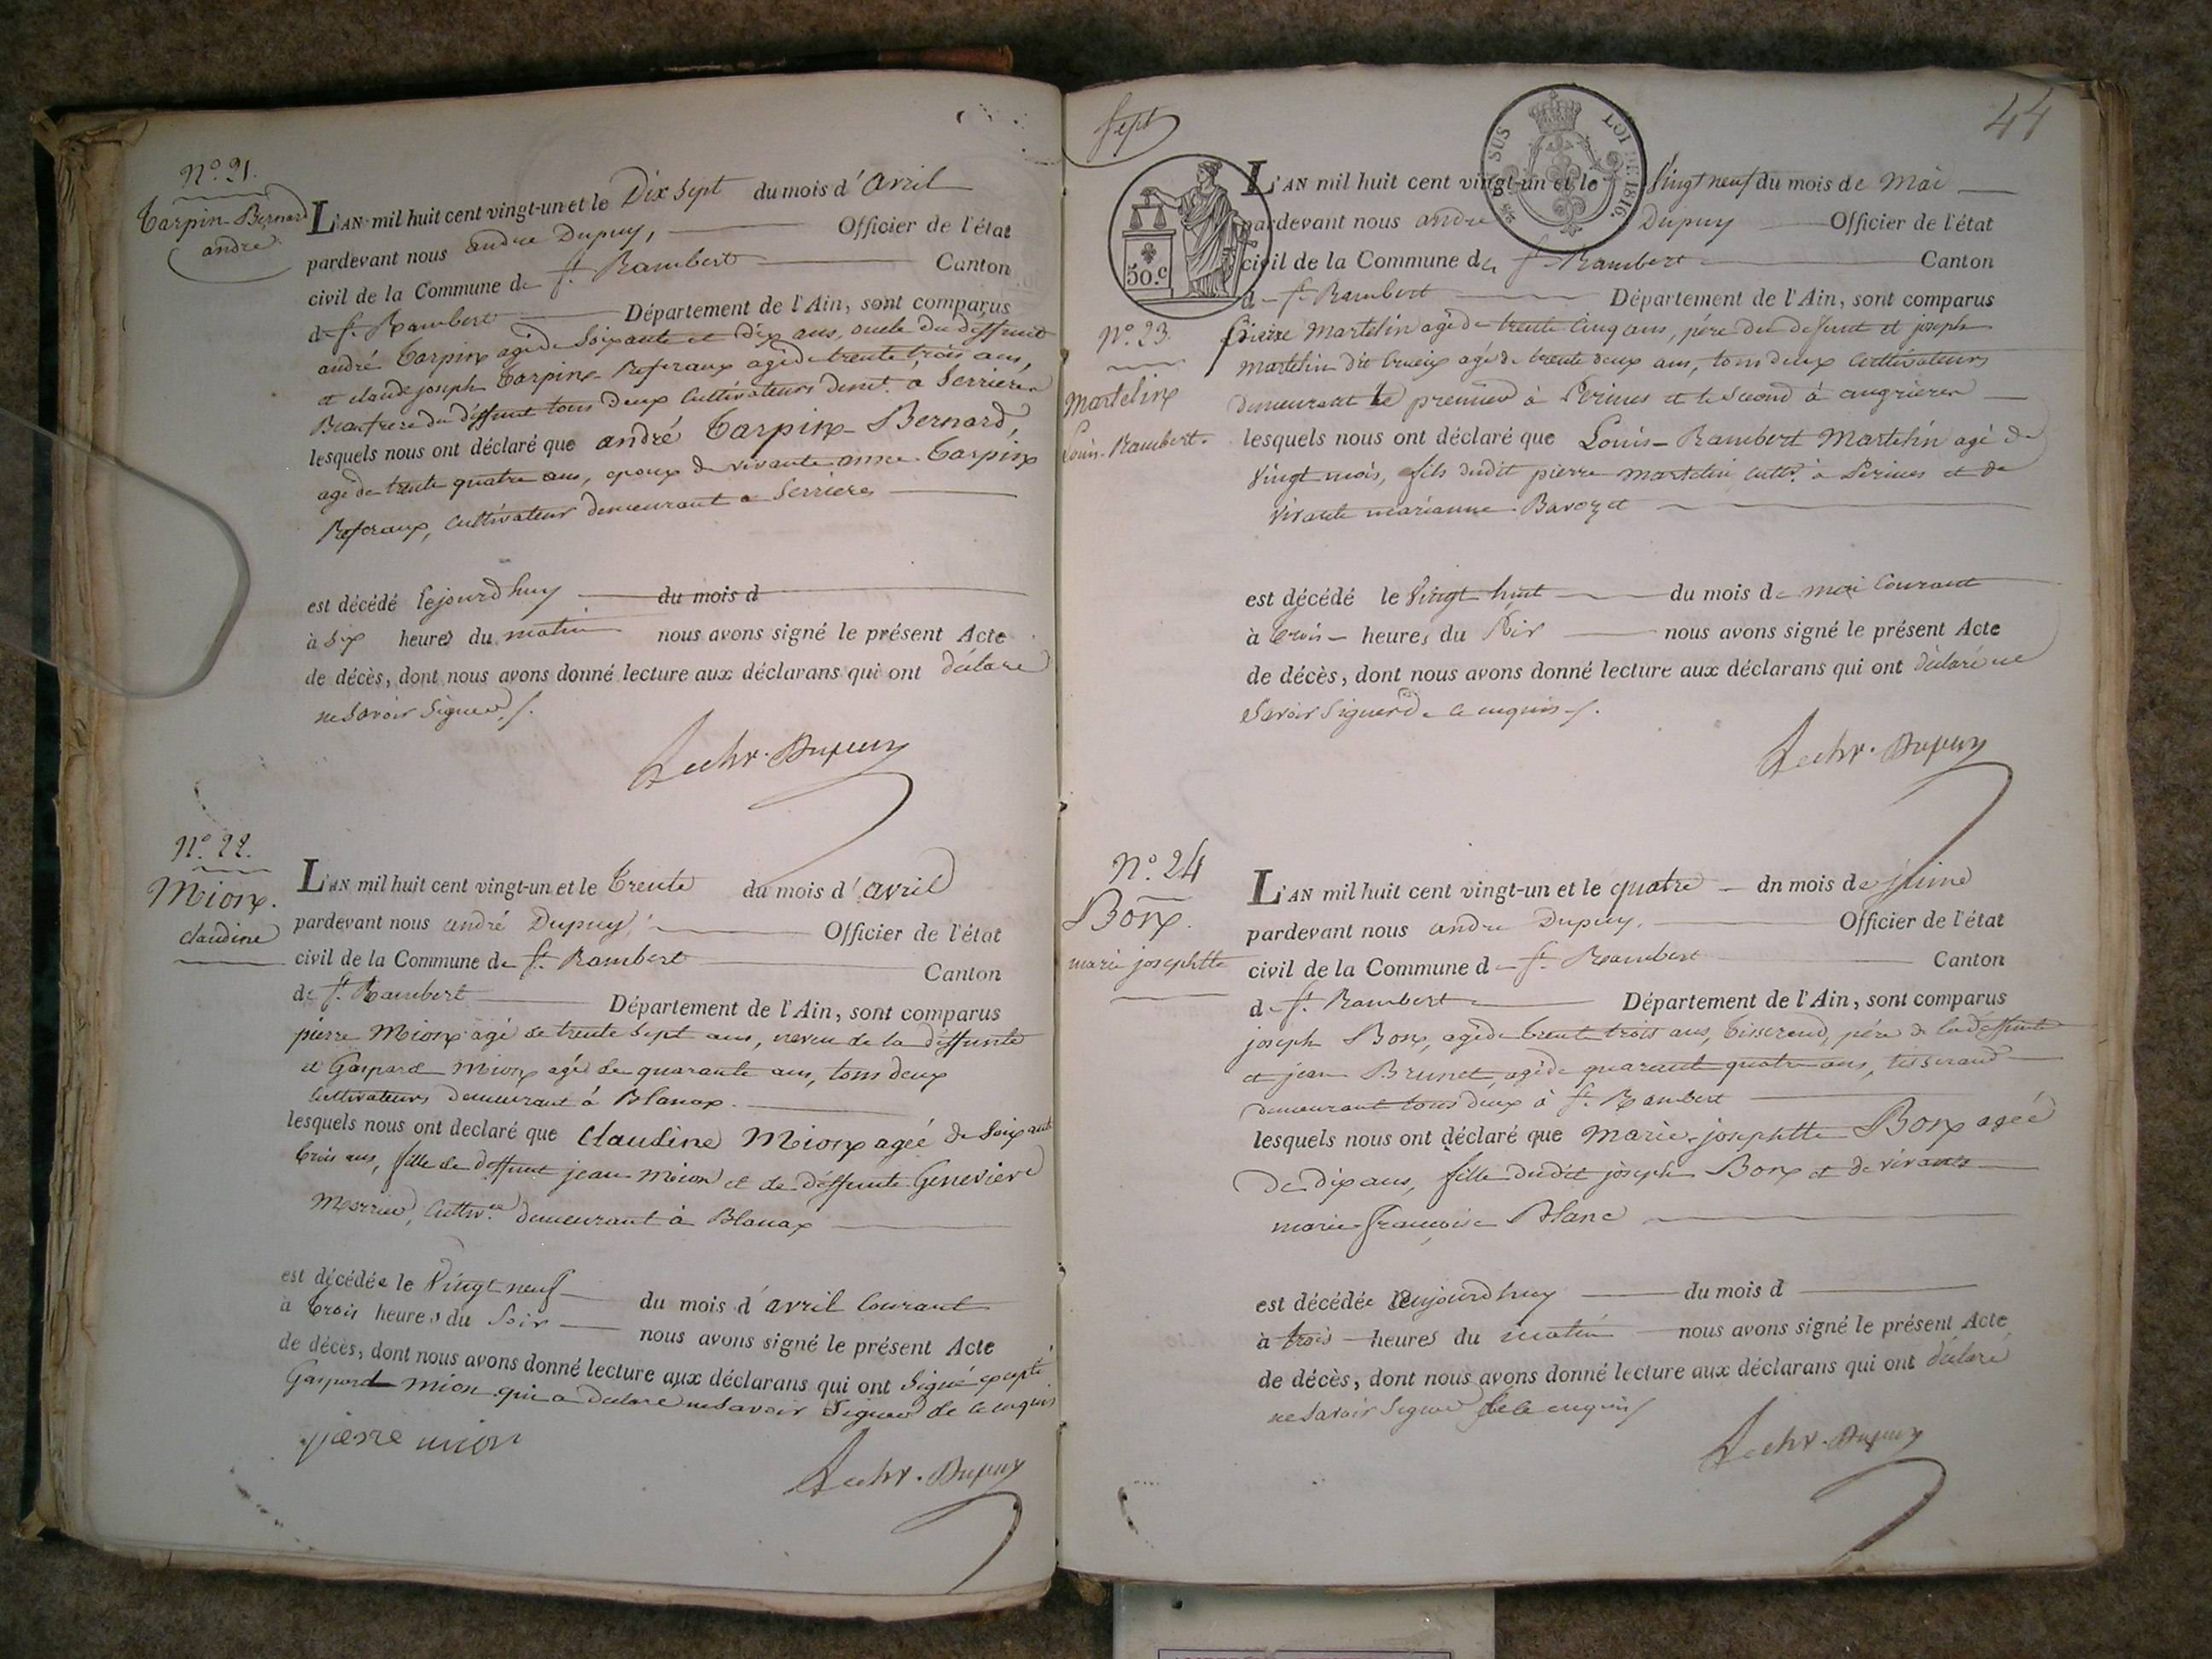 N.º 21.
Tarpin-Bernard
andré
L'AN mil huit cent vingt-un et le Dix sept du mois d'avril
pardevant nous andre Dupuy, Officier de l'état
civil de la Commune de St. Rambert Canton
de St. Rambert Département de l'Ain, sont comparus
andré Tarpin agé de Soixante et dix ans, oncle du deffunt
et claude joseph Tarpin agé de trente trois ans,
Beaufrere du deffunt tous deux Cultivateurs demt. à Serrieres
lesquels nous ont déclaré que andré Tarpin-Bernard,
agé de trente quatre ans, epoux de vivante anne Tarpin
cultivateur demeurant a Serrieres
est décédé Cejourd'huy du mois d
à Six heures du matin nous avons signé le présent Acte
de décès, dont nous avons donné lecture aux déclarans qui ont déclaré
ne Savoir Signer
Dupuy
N.º 22.
Mionx.
claudine
L'AN mil huit cent vingt-un et le trente du mois d'avril
pardevant nous andré Dupuy, Officier de l'état
civil de la Commune de St. Rambert Canton
de St. Rambert Département de l'Ain, sont comparus
pierre Mionx agé de trente Sept ans, neveu de la deffunte
et Gaspard Mionx agé de quarante ans, tous deux
Cultivateurs Demeurant á Blanax.
lesquels nous ont declaré que Claudine Mionx agée de Soixante
trois ans, fille de deffunt jean Mion et de deffunte Genevieve
demeurant à Blanax
est décédée le Vingt neuf du mois d'avril Courant
à trois heures du Soir nous avons signé le présent Acte
de décès, dont nous avons donné lecture aux déclarans qui ont Signé excepté
Gaspard Mion qui a déclaré ne Savoir Signer de ce enquis
pierre mion
Dupuy
Sept
44
SUS LOI DE 1816
50.c
L'AN mil huit cent vingt-un et le Vingt neuf du mois de Mai
pardevant nous andre Dupuy Officier de l'état
civil de la Commune de St. Rambert Canton
de St. Rambert Département de l'Ain, sont comparus
N.º 23.
Martelin
Louis-Rambert.
Pierre Martelin agé de trente Cinq ans, père du defunt et joseph
Martelin dit agé de trente deux ans, tous deux Cultivateurs
Demeurant le premier à Perines et le Second à angrieres
lesquels nous ont déclaré que Louis-Rambert Martelin agé de
Vingt mois, fils dudit pierre Martelin cultr. à Perines et de
vivante marianne Bavozet
est décédé le Vingt huit du mois de mai Courant
à trois heures du Soir nous avons signé le présent Acte
de décès, dont nous avons donné lecture aux déclarans qui ont déclaré ne
Savoir Signer de ce enquis
Dupuy
N.º 24
Bonx.
marie josephtte
L'AN mil huit cent vingt-un et le quatre du mois de juin
pardevant nous andre Dupuy. Officier de l'état
civil de la Commune de St. Rambert Canton
de St. Rambert Département de l'Ain, sont comparus
joseph Bonx, agé de trente trois ans, tisserand, pére de la deffunte
et jean Brunet, agé de quarante quatre ans, tisserand
Demeurant tous deux à St. Rambert
lesquels nous ont déclaré que Marie-josephtte Bonx agée
De dix ans, fille dudit joseph Bonx et de vivante
marie françoise Blanc
est décédée aujourd'huy du mois d
à trois heures du matin nous avons signé le présent Acte
de décès, dont nous avons donné lecture aux déclarans qui ont déclaré
ne Savoir Signer de ce enquis
Dupuy